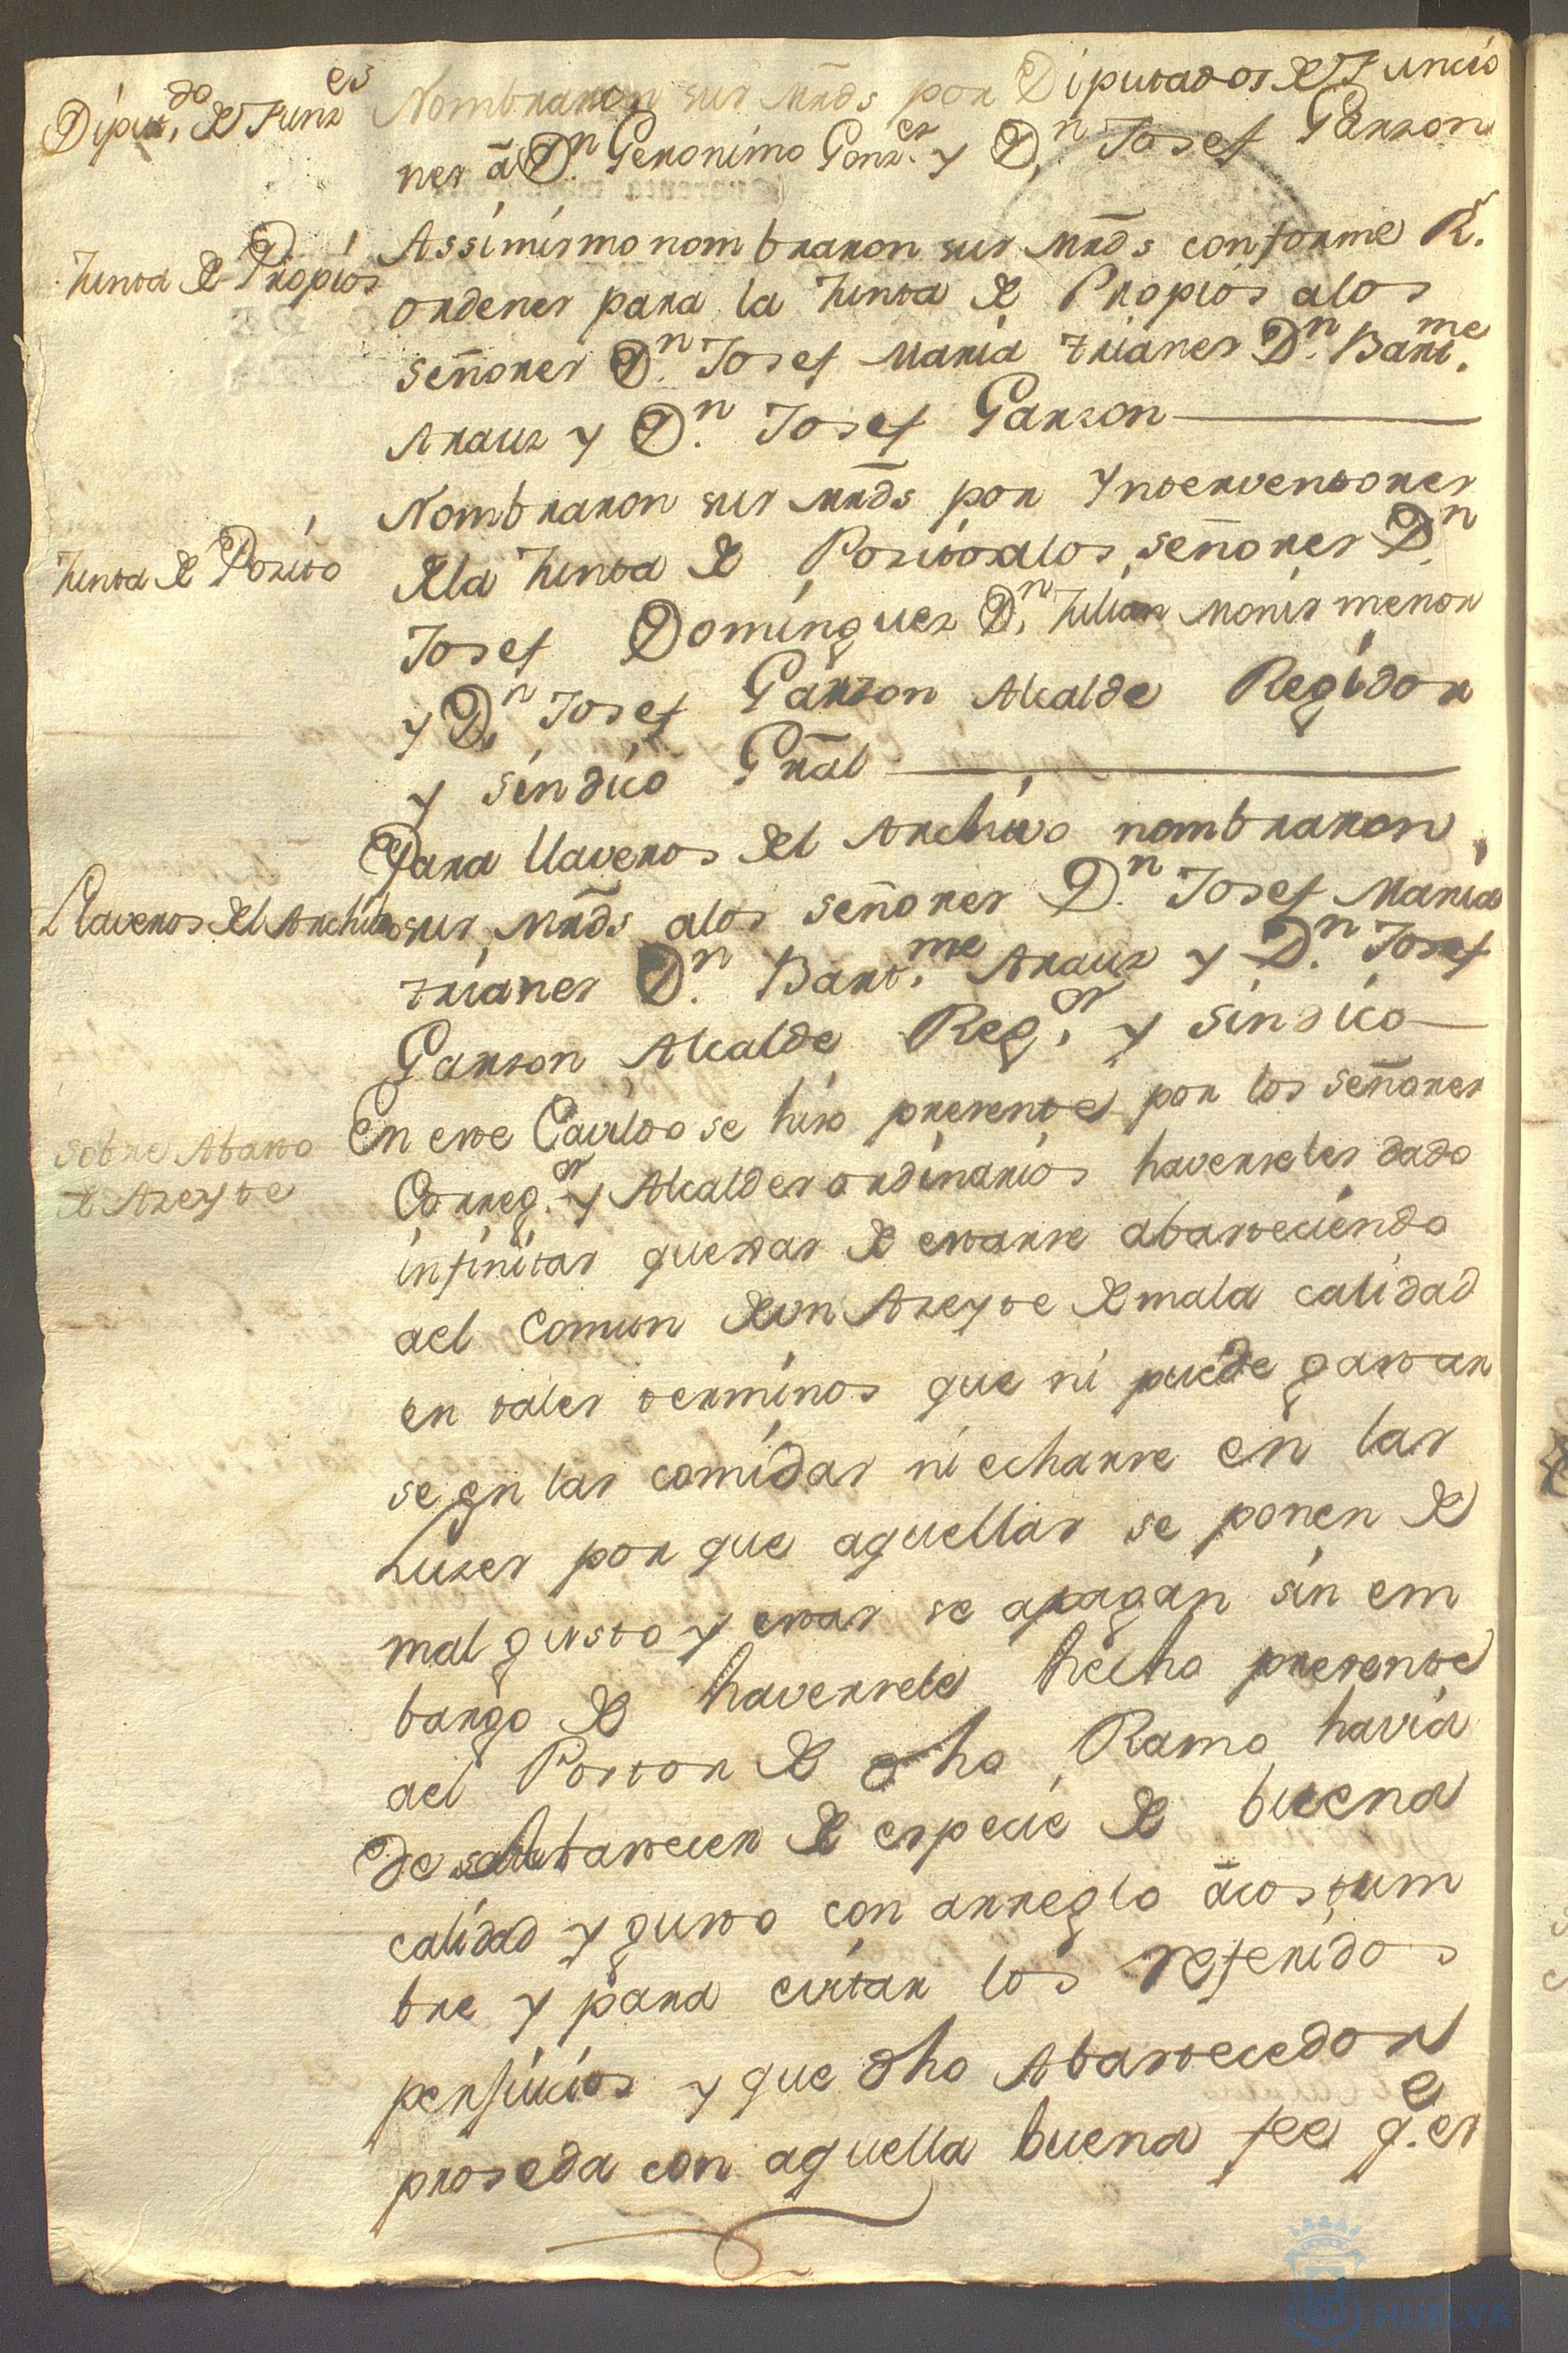 Diput.do de Funz.es
Nombraron sus mrds por Diputados de Funcio
nes â Dn. Geronimo Gonz.es y Dn. Josef Garzon
Junta de Propios
Assimismo nombraron sus mrds conforme Rs.
ordenes para la Junta de Propios alos
señores Dn. Josef Maria trianes Dn. Bart.me
Arauz y Dn. Josef Garzon
Nombraron sus mrds por Ynterventores
Junta de Posito
dela Junta de Positos alos señores Dn.
Josef Dominguez Dn. Julian monis menor
y Dn. Josef Garzon Alcalde Regidor
y sindico Gral
Para llaveros del Archivo nombraron
Llaveros del Archivo
sus mrds alos señores Dn. Josef Maria
trianes Dn. Bart.me Arauz y Dn. Josef
Garzon Alcalde Reg.or y sindico
En este Cavildo se hizo presente por los señores
sobre Abasto
de Azeyte
Correg.or y Alcaldes ordinarios haverseles dado
infinitas quexas de estarse abasteciendo
ael Comun deun Azeyte de mala calidad
en tales terminos que ni puede gastar
se en las comidas ni echarse en las
Luzes por que aquellas se ponen de
mal gusto y estas se apagan sin em
bargo de haversele hecho presente
ael Postor de dho Ramo havia
de Abastecer de especie de buena
calidad y gusto con arreglo âcostum
bre y para evitar los referidos
perjuicios y que dho Abastecedor
proseda con aquella buena fee q.e es
HUELVA